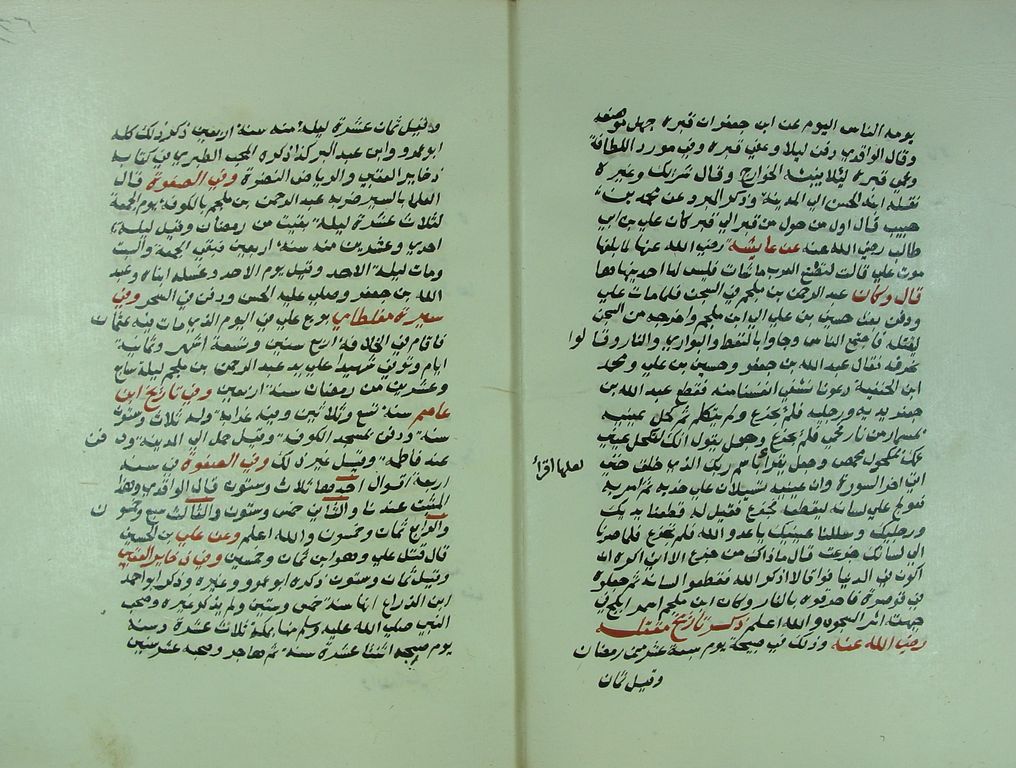 يومه الناس اليوم عن ابن جعفر ان قبره جهل موضعه
وقال الواقدي دفن ليلا وعمي قبره وفي مورد اللطافة
وعمي قبره لئلا ينبشه الخوارج وقال شريك وغيره
نقله ابنه الحسن الى المدينة وذكر المبرد عن محمد بن
حبيب قال اول من حول من قبر الى قبر كان علي بن ابي
طالب رضي الله عنه عن عايشة رضي الله عنها لما بلغها
موت علي قالت لتصنع العرب ما شات فليس لها احد ينهاها
قال وكان عبد الرحمن بن ملجم في السجن فلما مات علي
ودفن بعث حسن بن علي الى ابن ملجم واخرجه من السجن
ليقتله فاجتمع الناس وجاوا بالنفط والبواري والنار وقالوا
نحرقه فقال عبد الله بن جعفر وحسين بن علي ومحمد
ابن الحنفية دعونا نشفي انفسنا منه فقطع عبد الله بن
جعفر يديه ورجليه فلم يجزع ولم يتكلم ثم كحل عينيه
بمسمار من نار محمي فلم يجزع وجعل يقول انك لتكحل عيني
عمك بمكحول ممض وجعل يقرا باسم ربك الذي خلق حتى
لعلها اقرأ
اتى اخر السورة وان عينيه تسيلان على خديه ثم امر به
فعولج على لسانه ليقطعه فجزع فقيل له قطعنا يديك
ورجليك وسملنا عينيك يا عدو الله فلم تجزع فلما صرنا
الى لسانك جزعت قال ما ذاك من جزع الا اني اكره ان
اكون في الدنيا فواقا لا اذكر الله فقطعوا لسانه ثم جعلوه
في قوصرة فاحرقوه بالنار وكان ابن ملجم اسمر ابلج في
جبهته اثر السجود والله اعلم ذكر تاريخ مقتله
رضي الله عنه وذلك في صبيحة يوم سبعة عشر من رمضان
وقيل ثمان
وقيل ثمان عشرة ليلة منه سنة اربعين ذكر ذلك كله
ابو عمرو وابن عبد البر كذا ذكره المحب الطبري في كتابه
ذخاير العقبى والرياض النضرة وفي الصفوة قال
العلما بالسير ضربه عبد الرحمن بن ملجم بالكوفة يوم الجمعة
لثلاث عشرة ليلة بقيت من رمضان وقيل ليلة
احدى وعشرين منه سنة اربعين فبقي الجمعة والسبت
ومات ليلة الاحد وقيل يوم الاحد وغسله ابناه وعبد
الله بن جعفر وصلى عليه الحسن ودفن في السحر وفي
سيرة مغلطاي بويع علي في اليوم الذي مات فيه عثمان
فاقام في الخلافة اربع سنين وتسعة اشهر وثمانية
ايام وتوفي شهيدا على يد عبد الرحمن بن ملجم ليلة سابع
وعشرين من رمضان سنة اربعين وفي تاريخ ابن
عاصم سنة تسع وثلاثين وفيه غرابة وله ثلاث وستون
سنة ودفن بمسجد الكوفة وقيل حمل الى المدينة ودفن
عند فاطمة وقيل غير ذلك وفي الصفوة في سنه
اربعة اقوال احدها ثلاث وستون قال الواقدي وهذا
المثبت عندنا والثاني خمس وستون والثالث سبع وخمسون
والرابع ثمان وخمسون والله اعلم وعن علي بن الحسين
قال قتل علي وهو ابن ثمان وخمسين وفي ذخاير العقبى
وقيل ثمان وستون ذكره ابو عمرو وغيره وذكر ابو احمد
ابن الذراع انها سنة خمس وستين ولم يذكر غيره وصحب
النبي صلى الله عليه وسلم منها بمكة ثلاث عشرة وسنه
يوم صحبه اثنتا عشرة سنة ثم هاجر وصحبه عشر سنين